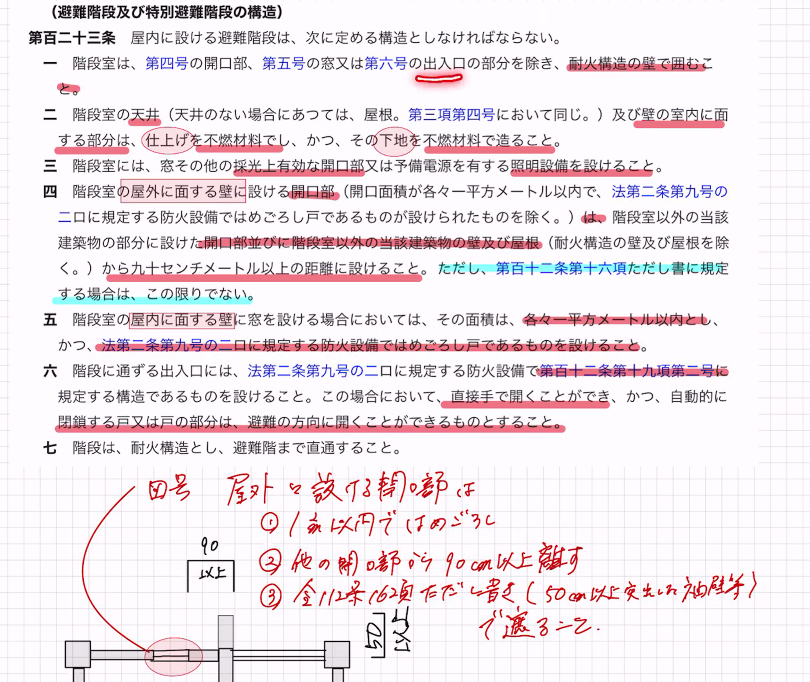 （避難階段及び特別避難階段の構造）
第百二十三条　屋内に設ける避難階段は、次に定める構造としなければならない。
一　階段室は、第四号の開口部、第五号の窓又は第六号の出入口の部分を除き、耐火構造の壁で囲むこ
と。
二　階段室の天井（天井のない場合にあつては、屋根。第三項第四号において同じ。）及び壁の室内に面
する部分は、仕上げを不燃材料でし、かつ、その下地を不燃材料で造ること。
三　階段室には、窓その他の採光上有効な開口部又は予備電源を有する照明設備を設けること。
四　階段室の屋外に面する壁に設ける開口部（開口面積が各々一平方メートル以内で、法第二条第九号の
二ロに規定する防火設備ではめごろし戸であるものが設けられたものを除く。）は、階段室以外の当該
建築物の部分に設けた開口部並びに階段室以外の当該建築物の壁及び屋根（耐火構造の壁及び屋根を除
く。）から九十センチメートル以上の距離に設けること。ただし、第百十二条第十六項ただし書に規定
する場合は、この限りでない。
五　階段室の屋内に面する壁に窓を設ける場合においては、その面積は、各々一平方メートル以内とし、
かつ、法第二条第九号の二ロに規定する防火設備ではめごろし戸であるものを設けること。
六　階段に通ずる出入口には、法第二条第九号の二ロに規定する防火設備で第百十二条第十九項第二号に
規定する構造であるものを設けること。この場合において、直接手で開くことができ、かつ、自動的に
閉鎖する戸又は戸の部分は、避難の方向に開くことができるものとすること。
七　階段は、耐火構造とし、避難階まで直通すること。
四号 屋外に設ける開口部は
① 1㎡以内ではめごろし
② 他の開口部から90cm以上離す
③ 令112条16項ただし書き（50cm以上突出した袖壁等）
で遮ること.
90
以上
50
以上